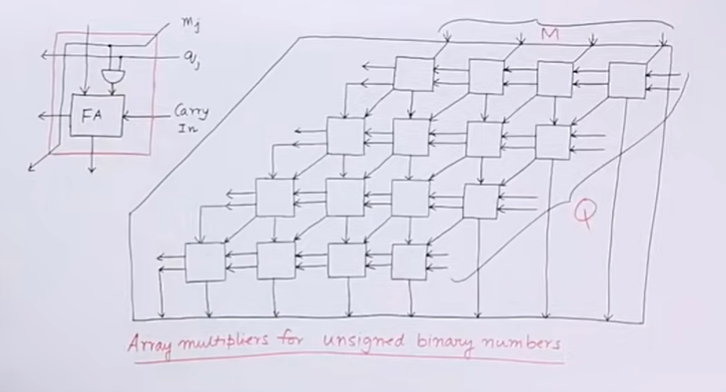 mj
qj
FA
Carry
In
M
Q
Array multipliers for unsigned binary numbers